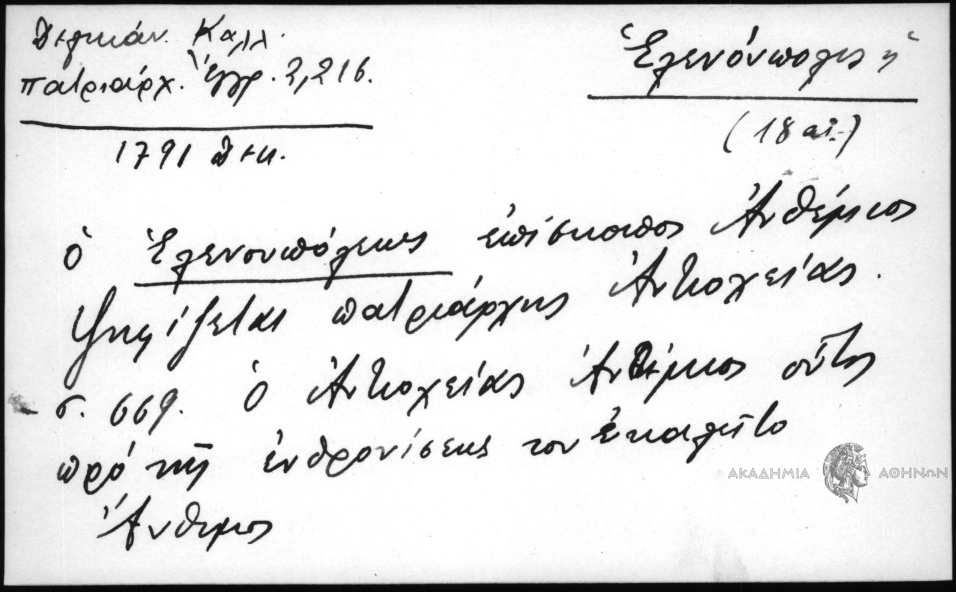 Δελικάν. Καλλ.
πατριάρχ. Ἔγγρ. 3,216.
1791 Δεκ.
Ἑλενόυπολις ἡ
(18 αἰ.)
ὁ Ἑλενουπόλεως ἐπίσκοπος Ἀνθέμιος
ψηφίζεται πατριάρχης Ἀντιοχείας.
σ. 669. ὁ Ἀντιοχείας Ἀνθέμιος οὗτος
πρό τῆς ἐνθρονίσεως του ἐκαλεῖτο
Ἄνθιμος
ΑΚΑΔΗΜΙΑ ΑΘΗΝΩΝ